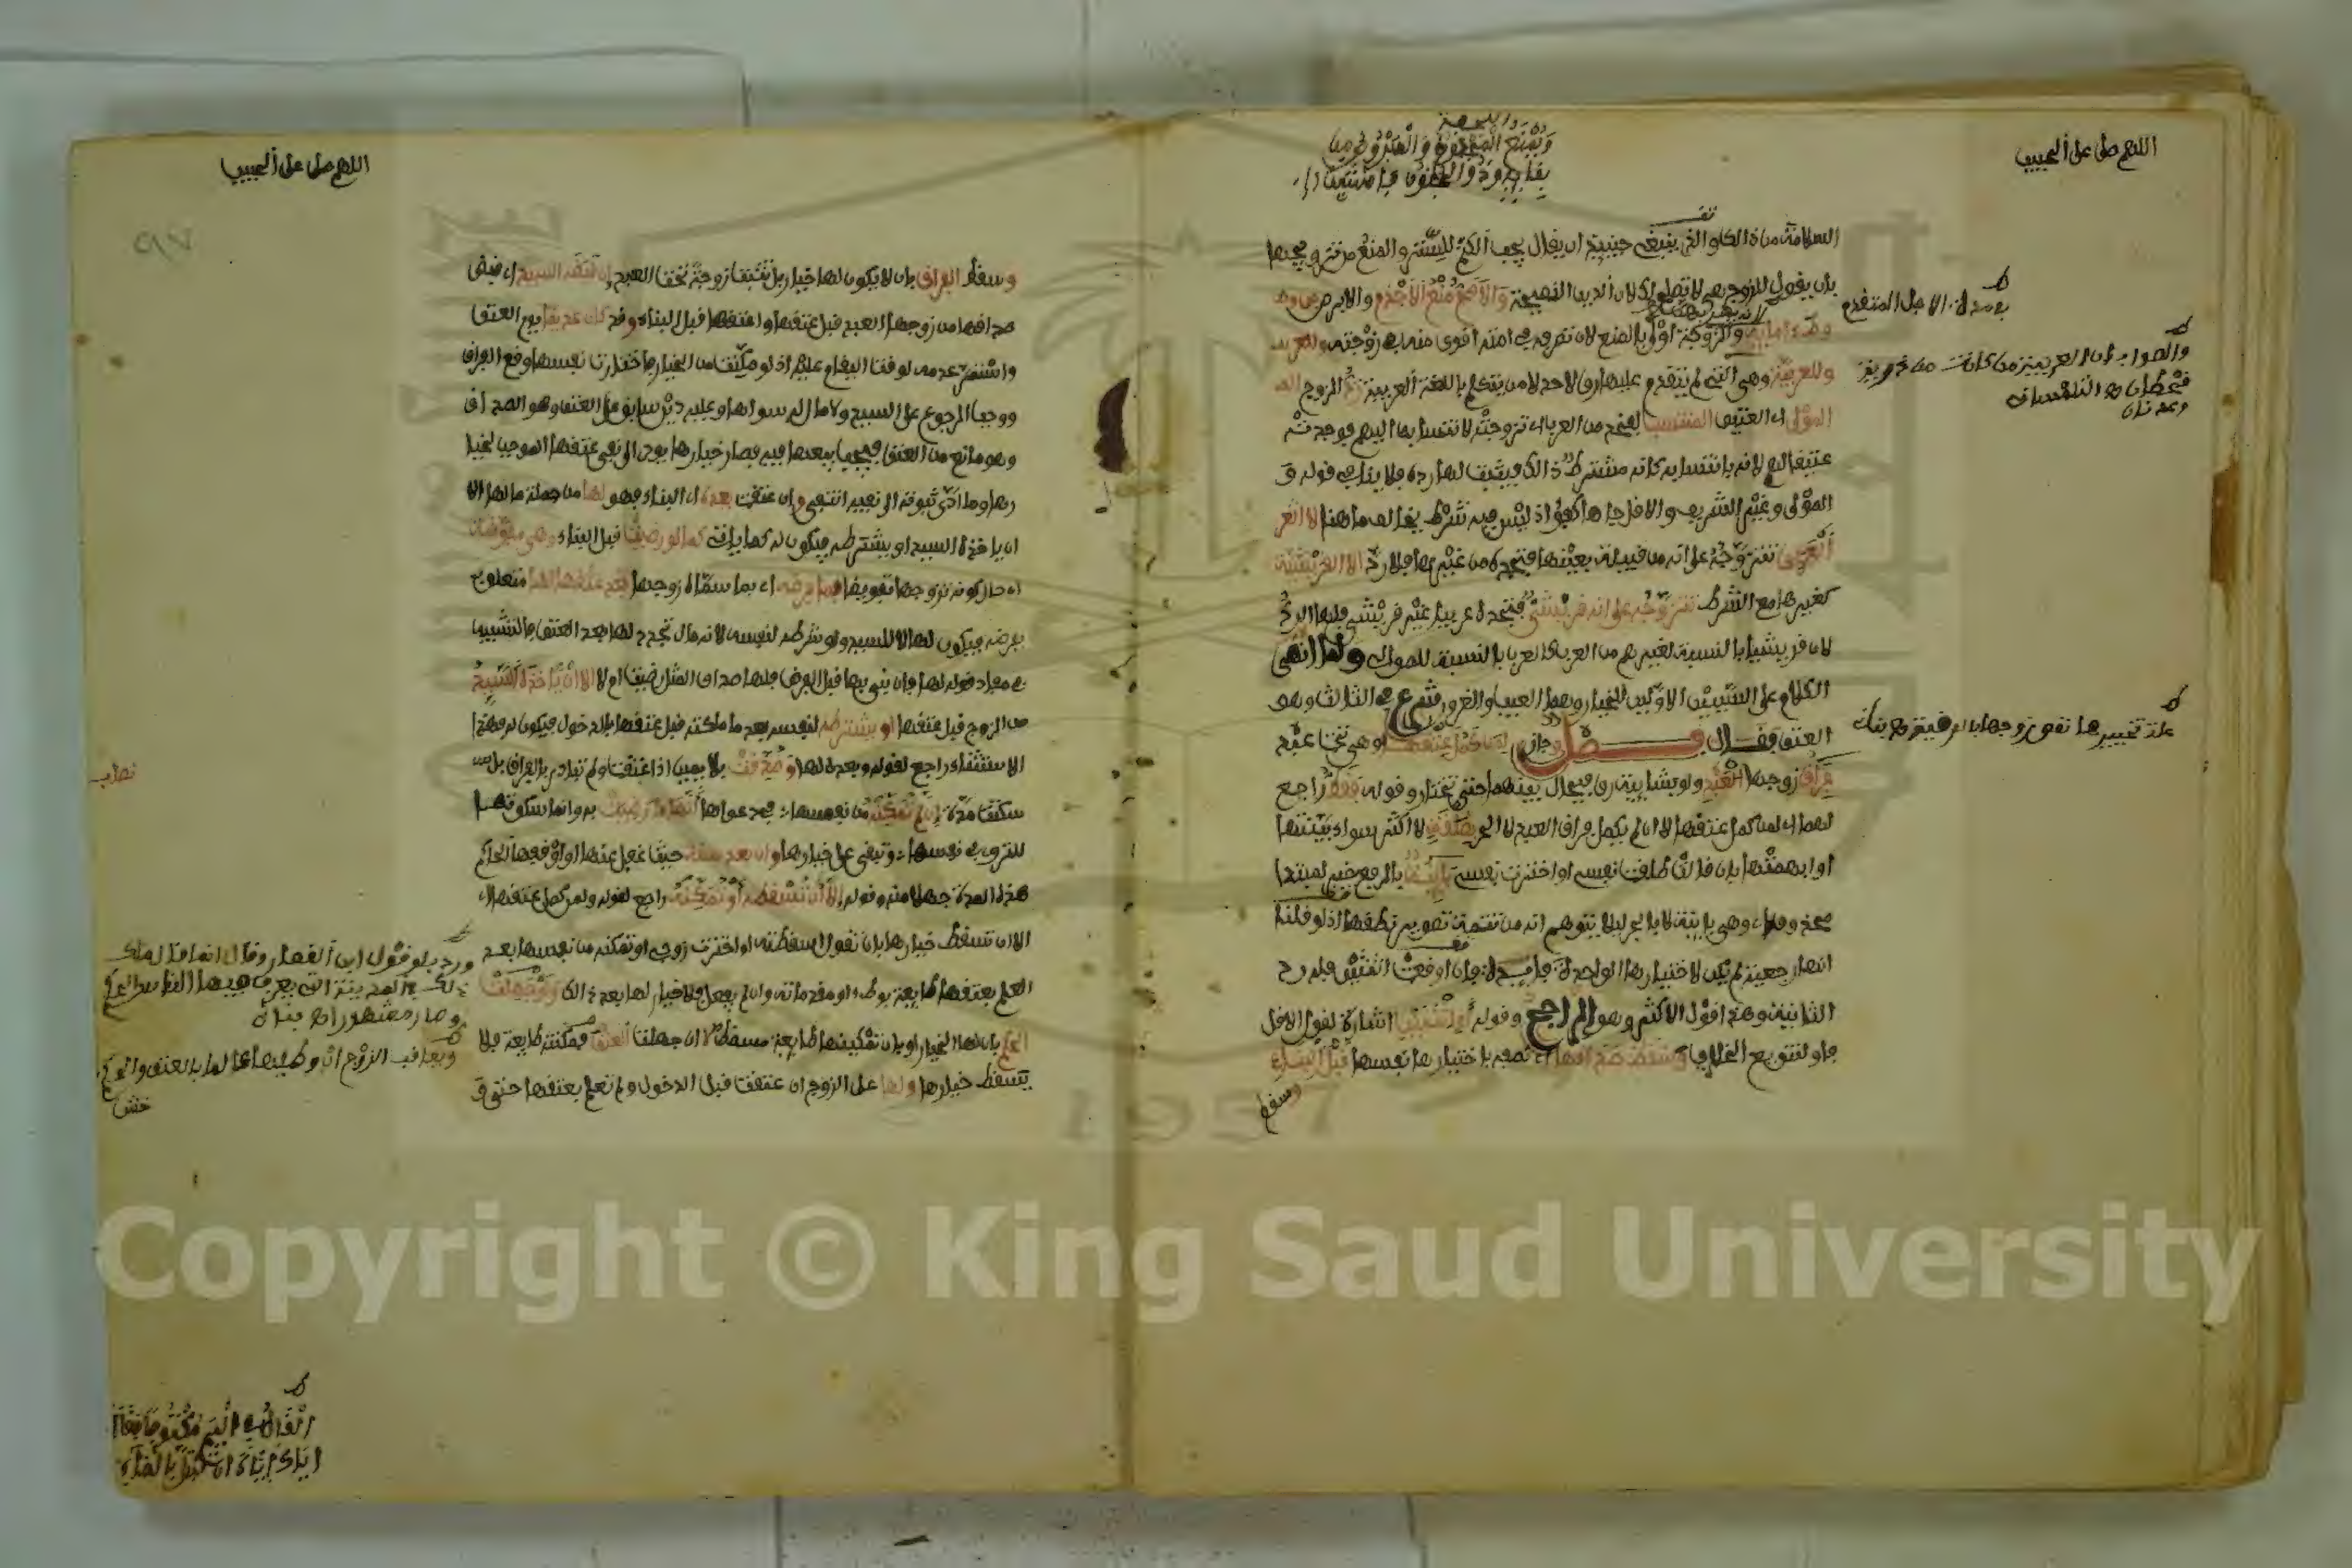 اللهم صل على الحبيب
السلامة من ذلك والذي ينبغي حينئذ ان يقال يجب الكتم للستر والمنع من تزويجها
بان يقول للزوج هي لا تصلح لك لان الدين النصيحة والاصح منع الاجذم والابرص من وطء
وطء امائه والزوجة اولى بالمنع لان تصرفه في امته اقوى منه في زوجته وللعربية
وللعربية وهي التي لم يتقدم عليها رق لاحد لا من يتكلم باللغة العربية رد الزوج
المولى اي العتيق المنتسب لفخذ من العرب اي تزوجته لانتسابه اليهم فوجدته
عتيقا لهم لانه بانتسابه كانه مشترط ذلك فيثبت لها رده فلا ينافي قوله و
المولى وغير الشريف والاقل جاها كفؤ اذ ليس فيه شرط بخلاف ما هنا لا العربي
العربي تتزوجه على انه من قبيلة بعينها فتجده من غيرها فلا رد الا القرشية
كغيرها مع الشرط تتزوجه على انه قرشي فتجده عربيا غير قرشي فلها الرد
لان قريشا بالنسبة لغيرهم من العرب كالعرب بالنسبة للموالي ولما انهى
الكلام على السببين الاولين للخيار وهما العيب والغرور شرع في الثالث وهو
العتق فقال فصل وجاز لمن كمل عتقها وهي تحت عبد
فراق زوجها العبد ولو بشائبة رق فيحال بينهما حتى تختار وقوله فقط راجع
لهما اي لمن كمل عتقها لا ان لم يكمل فراق العبد لا الحر بطلقة لا اكثر سواء بينتها
او ابهمتها بان قالت طلقت نفسي او اخترت نفسي بائنة بالرفع خبر لمبتدا
محذوف اي وهي بائنة لا بالجر ليلا يتوهم انه من تتمة تصوير نطقها اذ لو قلنا
انها رجعية لم يكن لاختيارها الواحدة فايدة فان اوقعت اثنتين فله رد
الثانية وهذا قول الاكثر وهو الراجح وقوله او اثنتين اشارة لقول الاقل
فاو لتنويع الخلاف وسقط صداقها اي نصفه باختيارها نفسها قبل البناء
وسقط
بمدلة الاجل المتقدم
والصواب ان العربية من كانت من
علة تخييرها نقص زوجها بالرقية بناني
اللهم صل على الحبيب
وسقط الفراق بان لا يكون لها خيار بل تثبت زوجة تحت العبد ان قبضه السيد اي قبض
صداقها من زوجها العبد قبل عتقها واعتقها قبل البناء وقد كان عديما يوم العتق
واستمر عدمه لوقت القيام عليه اذ لو مكنت من الخيار فاختارت نفسها وقع الفراق
ووجب الرجوع على السيد ولا مال له سواها وعليه دين سابق على العتق وهو الصداق
وهو مانع من العتق فيجب بيعها فيه فصار خيارها يودي الى نفي عتقها الموجب لخيا
رها وما ادى ثبوته الى نفيه انتفى وان عتقت بعده اي البناء فهو لها من جملة مالها الا
ان ياخذه السيد او يشترطه فيكون له كما ياتي كما لو رضيت قبل البناء وهي مفوضة
اي حال كونه تزوجها تفويضا بما يفرضه اي بما سماه زوجها بعد عتقها لها متعلق ب
يفرضه فيكون لها لا للسيد ولو شرطه لنفسه لانه مال تجدد لها بعد العتق فالتشبيه
في مفاد قوله لها فان بنى بها قبل الفرض فلها صداق المثل رضيت ام لا الا ان ياخذه السيد
من الزوج قبل عتقها او يشترطه لنفسه بعد ما ملكته قبل عتقها بالدخول فيكون له فهذا
الاستثناء راجع لقوله وبعده لها وصدقت بلا يمين اذا عتقت ولم تبادر بالفراق بل
سكتت مدة ان لم تمكنه من نفسها في دعواها انها ما رضيت به وانما سكوتها
للتروي في نفسها وتبقى على خيارها وان بعد سنة حيث غفل عنها او اوقفها الحاكم
هذه المدة جهلا منه وقوله الا ان تسقطه او تمكنه راجع لقوله ولمن كمل عتقها اي
الا ان تسقط خيارها بان تقول اسقطته او اخترت زوجي او تمكنه من نفسها بعد
العلم بعتقها طايعة بوطء او مقدماته وان لم يفعل فلا خيار لها بعد ذلك ولو جهلت
الحكم بان لها الخيار او بان تمكينها طايعة مسقط لا ان جهلت العتق فمكنته طايعة فلا
يسقط خيارها ولها على الزوج ان عتقت قبل الدخول ولم تعلم بعتقها حتى و
ورد بلو قول ابن القصار وقال انما قال مالك
ذلك بالمدينة التي يعرف فيها الناس الحكم
وصار مشهورا بناني
ويعاقب الزوج ان وطئها عالما بالعتق والحكم
خش